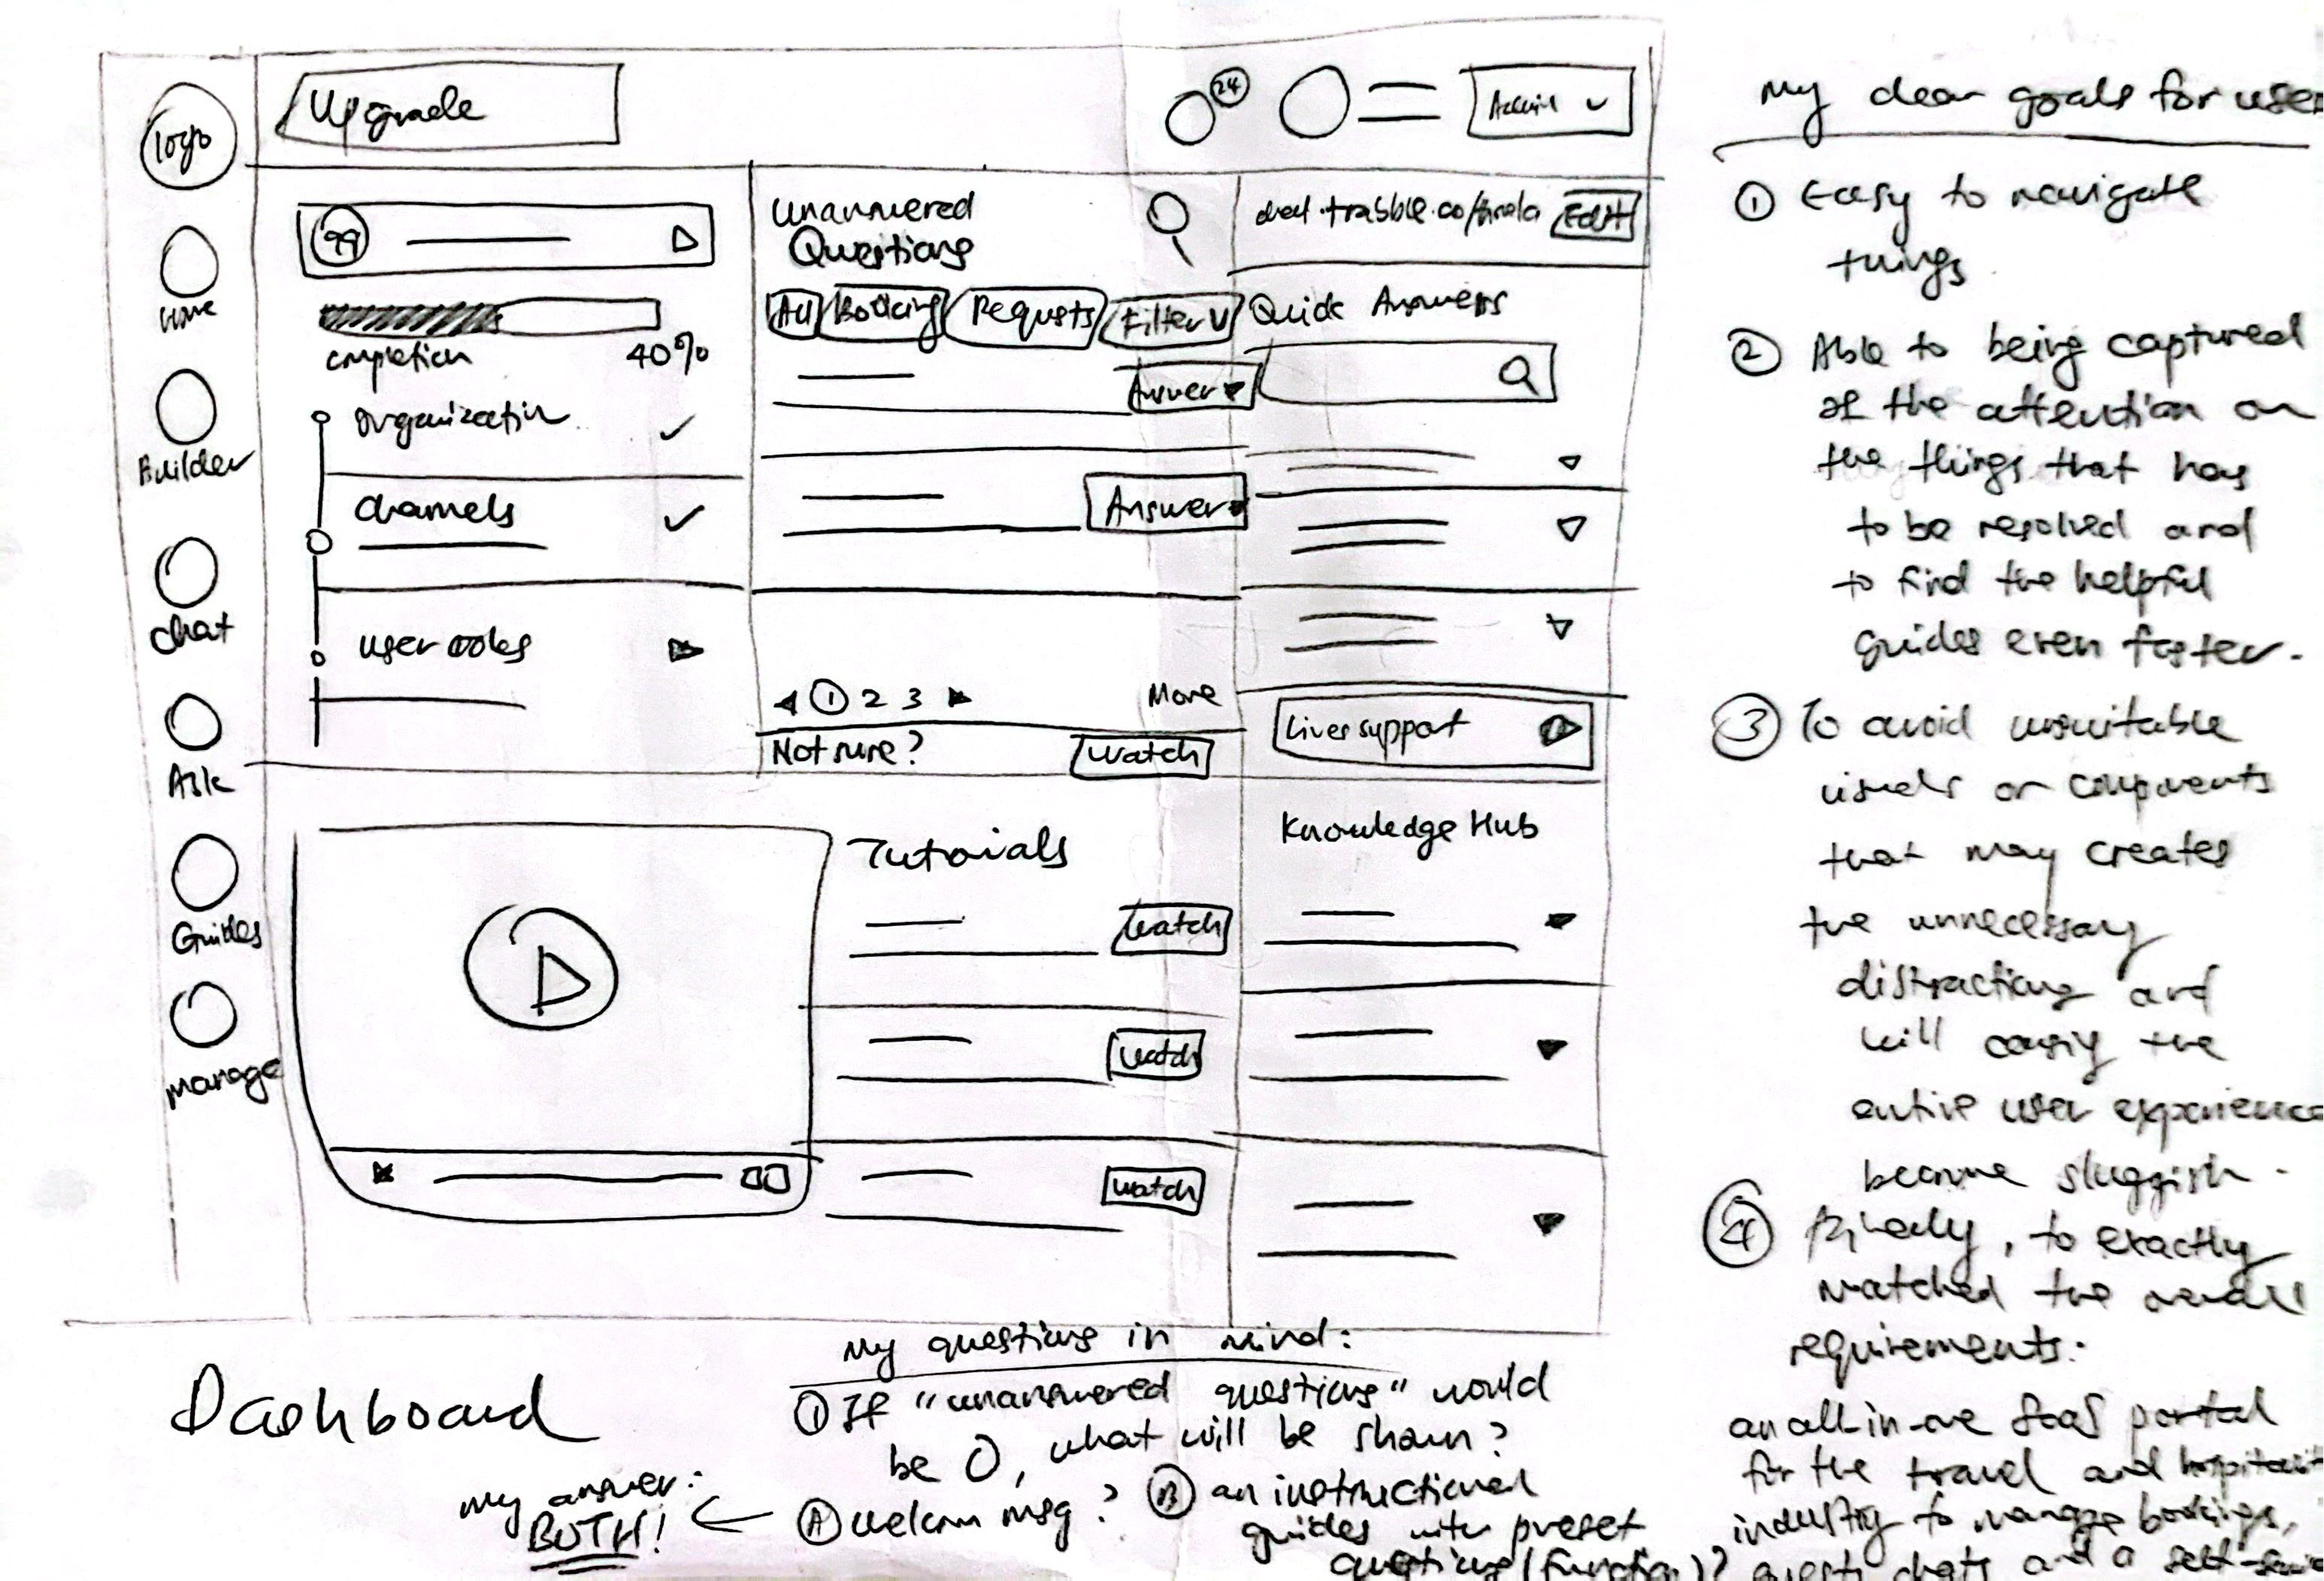 logo
Home
Builder
Chat
Ask
Guides
Manage
Upgrade
24
Admin
99
completion 40%
Organization
Channels
User roles
Unanswered
Questions
All Booking Requests Filter
Answer
Answer
1 2 3 More
Not sure? Watch
.trabble.co/ Edit
Quick Answers
Live support
Tutorials
Watch
Watch
Watch
Knowledge Hub
Dashboard
My questions in mind:
① If "unanswered questions" would
be 0, what will be shown?
Ⓐ Welcom msg? Ⓑ an instructional
guides with preset
questions (function)?
my answer:
BOTH!
My clear goals for user
① Easy to navigate
things.
② Able to being captured
of the attention on
the things that has
to be resolved and
to find the helpful
guides even faster.
③ To avoid unsuitable
visuals or components
that may creates
the unnecessary
distractions and
will the
entire user experience
become sluggish.
④ Finally, to exactly
matched the overall
requirements:
an all-in-one SaaS portal
for the travel and
industry to manage bookings,
guests chats and a